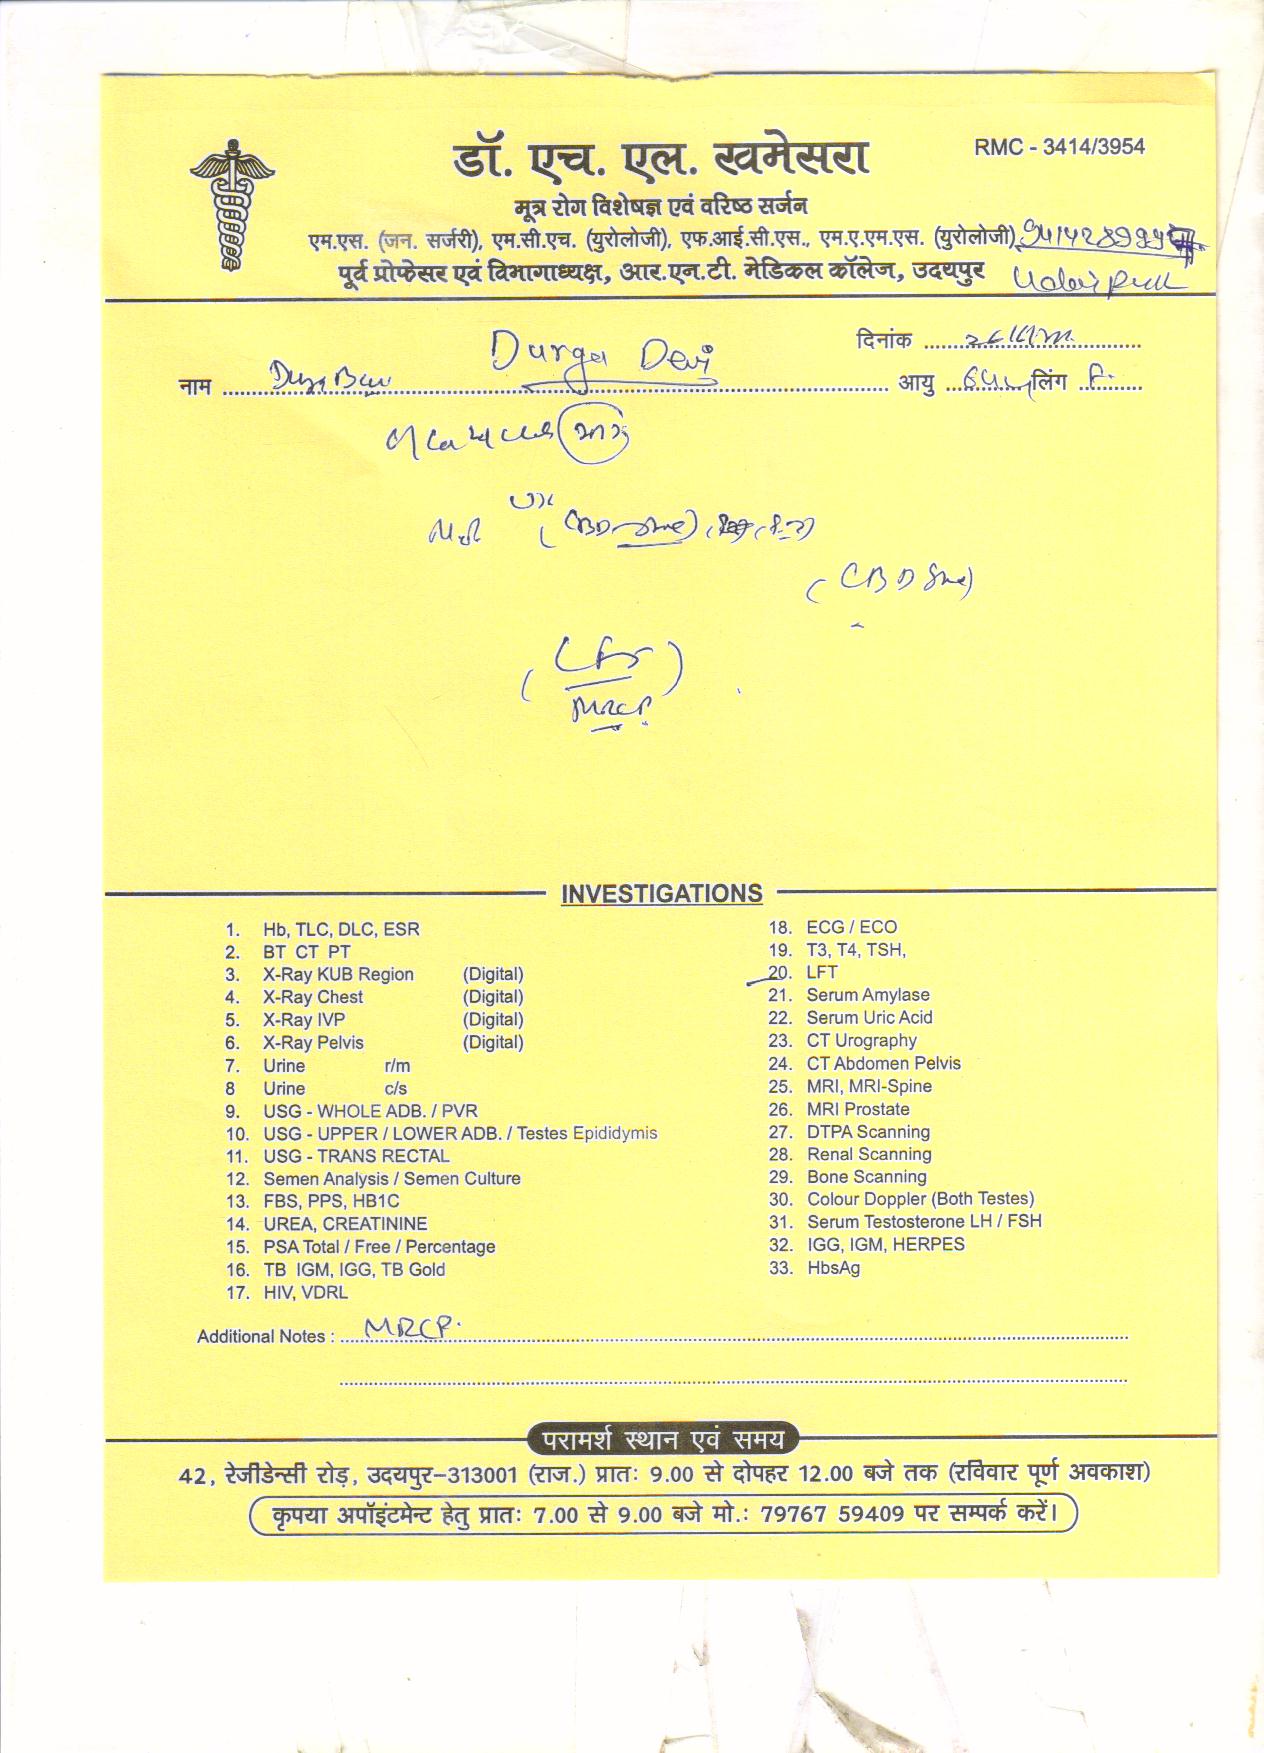 डॉ. एच. एल. खमेसरा
RMC - 3414/3954
मूत्र रोग विशेषज्ञ एवं वरिष्ठ सर्जन
एम.एस. (जन. सर्जरी), एम.सी.एच. (युरोलोजी), एफ.आई.सी.एस., एम.ए.एम.एस. (युरोलोजी)
पूर्व प्रोफेसर एवं विभागाध्यक्ष, आर.एन.टी. मेडिकल कॉलेज, उदयपुर
Durga Devi
दिनांक
नाम आयु लिंग F.
(CBD Stone)
(CBD Stone)
MRCP
INVESTIGATIONS
1. Hb, TLC, DLC, ESR
2. BT CT PT
3. X-Ray KUB Region (Digital)
4. X-Ray Chest (Digital)
5. X-Ray IVP (Digital)
6. X-Ray Pelvis (Digital)
7. Urine r/m
8 Urine c/s
9. USG - WHOLE ADB. / PVR
10. USG - UPPER / LOWER ADB. / Testes Epididymis
11. USG - TRANS RECTAL
12. Semen Analysis / Semen Culture
13. FBS, PPS, HB1C
14. UREA, CREATININE
15. PSA Total / Free / Percentage
16. TB IGM, IGG, TB Gold
17. HIV, VDRL
18. ECG / ECO
19. T3, T4, TSH,
20. LFT
21. Serum Amylase
22. Serum Uric Acid
23. CT Urography
24. CT Abdomen Pelvis
25. MRI, MRI-Spine
26. MRI Prostate
27. DTPA Scanning
28. Renal Scanning
29. Bone Scanning
30. Colour Doppler (Both Testes)
31. Serum Testosterone LH / FSH
32. IGG, IGM, HERPES
33. HbsAg
Additional Notes : MRCP.
परामर्श स्थान एवं समय
42, रेजीडेन्सी रोड़, उदयपुर-313001 (राज.) प्रातः 9.00 से दोपहर 12.00 बजे तक (रविवार पूर्ण अवकाश)
कृपया अपॉइंटमेन्ट हेतु प्रातः 7.00 से 9.00 बजे मो.: 79767 59409 पर सम्पर्क करें।